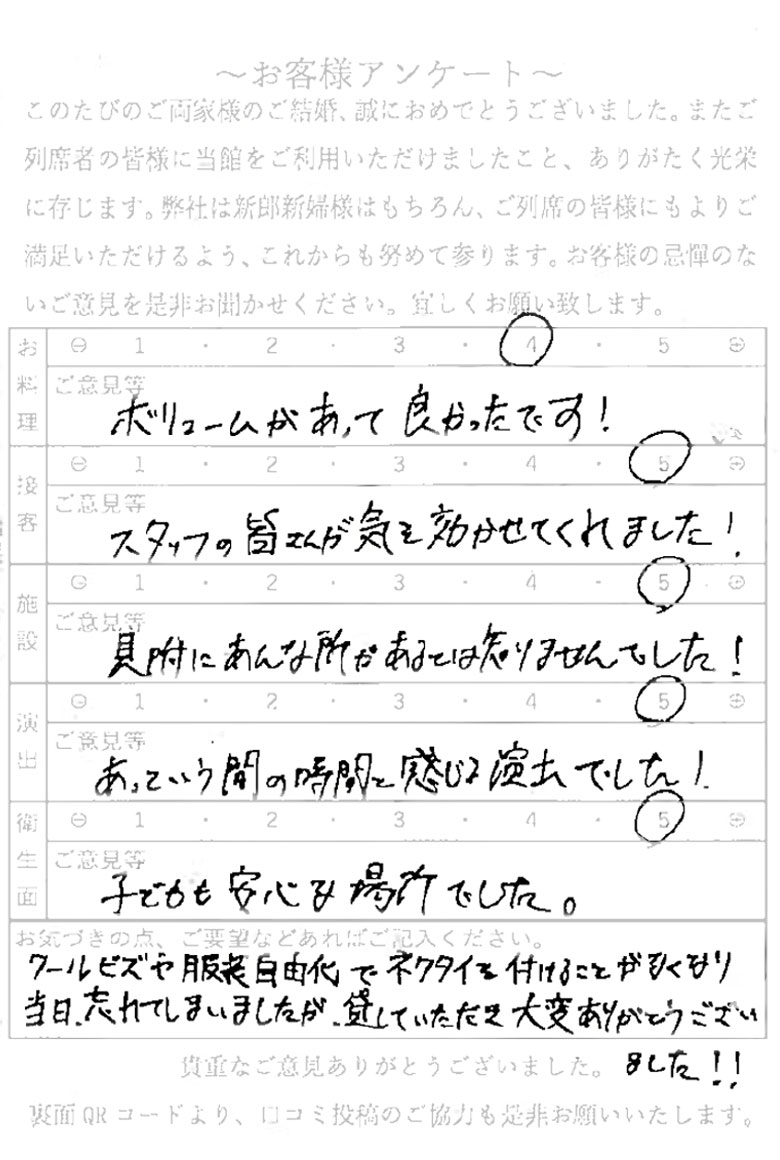 ～お客様アンケート～
このたびのご両家様のご結婚、誠におめでとうございました。またご
列席者の皆様に当館をご利用いただけましたこと、ありがたく光栄
に存じます。弊社は新郎新婦様はもちろん、ご列席の皆様にもよりご
満足いただけるよう、これからも努めて参ります。お客様の忌憚のな
いご意見を是非お聞かせください。宜しくお願い致します。
お料理 ⊖ 1 ・ 2 ・ 3 ・ 4 ・ 5 ⊕
ご意見等
ボリュームがあって良かったです!
接客 ⊖ 1 ・ 2 ・ 3 ・ 4 ・ 5 ⊕
ご意見等
スタッフの皆さんが気を効かせてくれました!
施設 ⊖ 1 ・ 2 ・ 3 ・ 4 ・ 5 ⊕
ご意見等
見附にあんな所があるとは知りませんでした!
演出 ⊖ 1 ・ 2 ・ 3 ・ 4 ・ 5 ⊕
ご意見等
あっという間の時間と感じる演出でした!
衛生面 ⊖ 1 ・ 2 ・ 3 ・ 4 ・ 5 ⊕
ご意見等
子どもも安心な場所でした。
お気づきの点、ご要望などあればご記入ください。
クールビズや服装自由化でネクタイを付けることがなくなり
当日、忘れてしまいましたが、貸していただき大変ありがとうござい
ました!!
貴重なご意見ありがとうございました。
裏面QRコードより、口コミ投稿のご協力も是非お願いいたします。